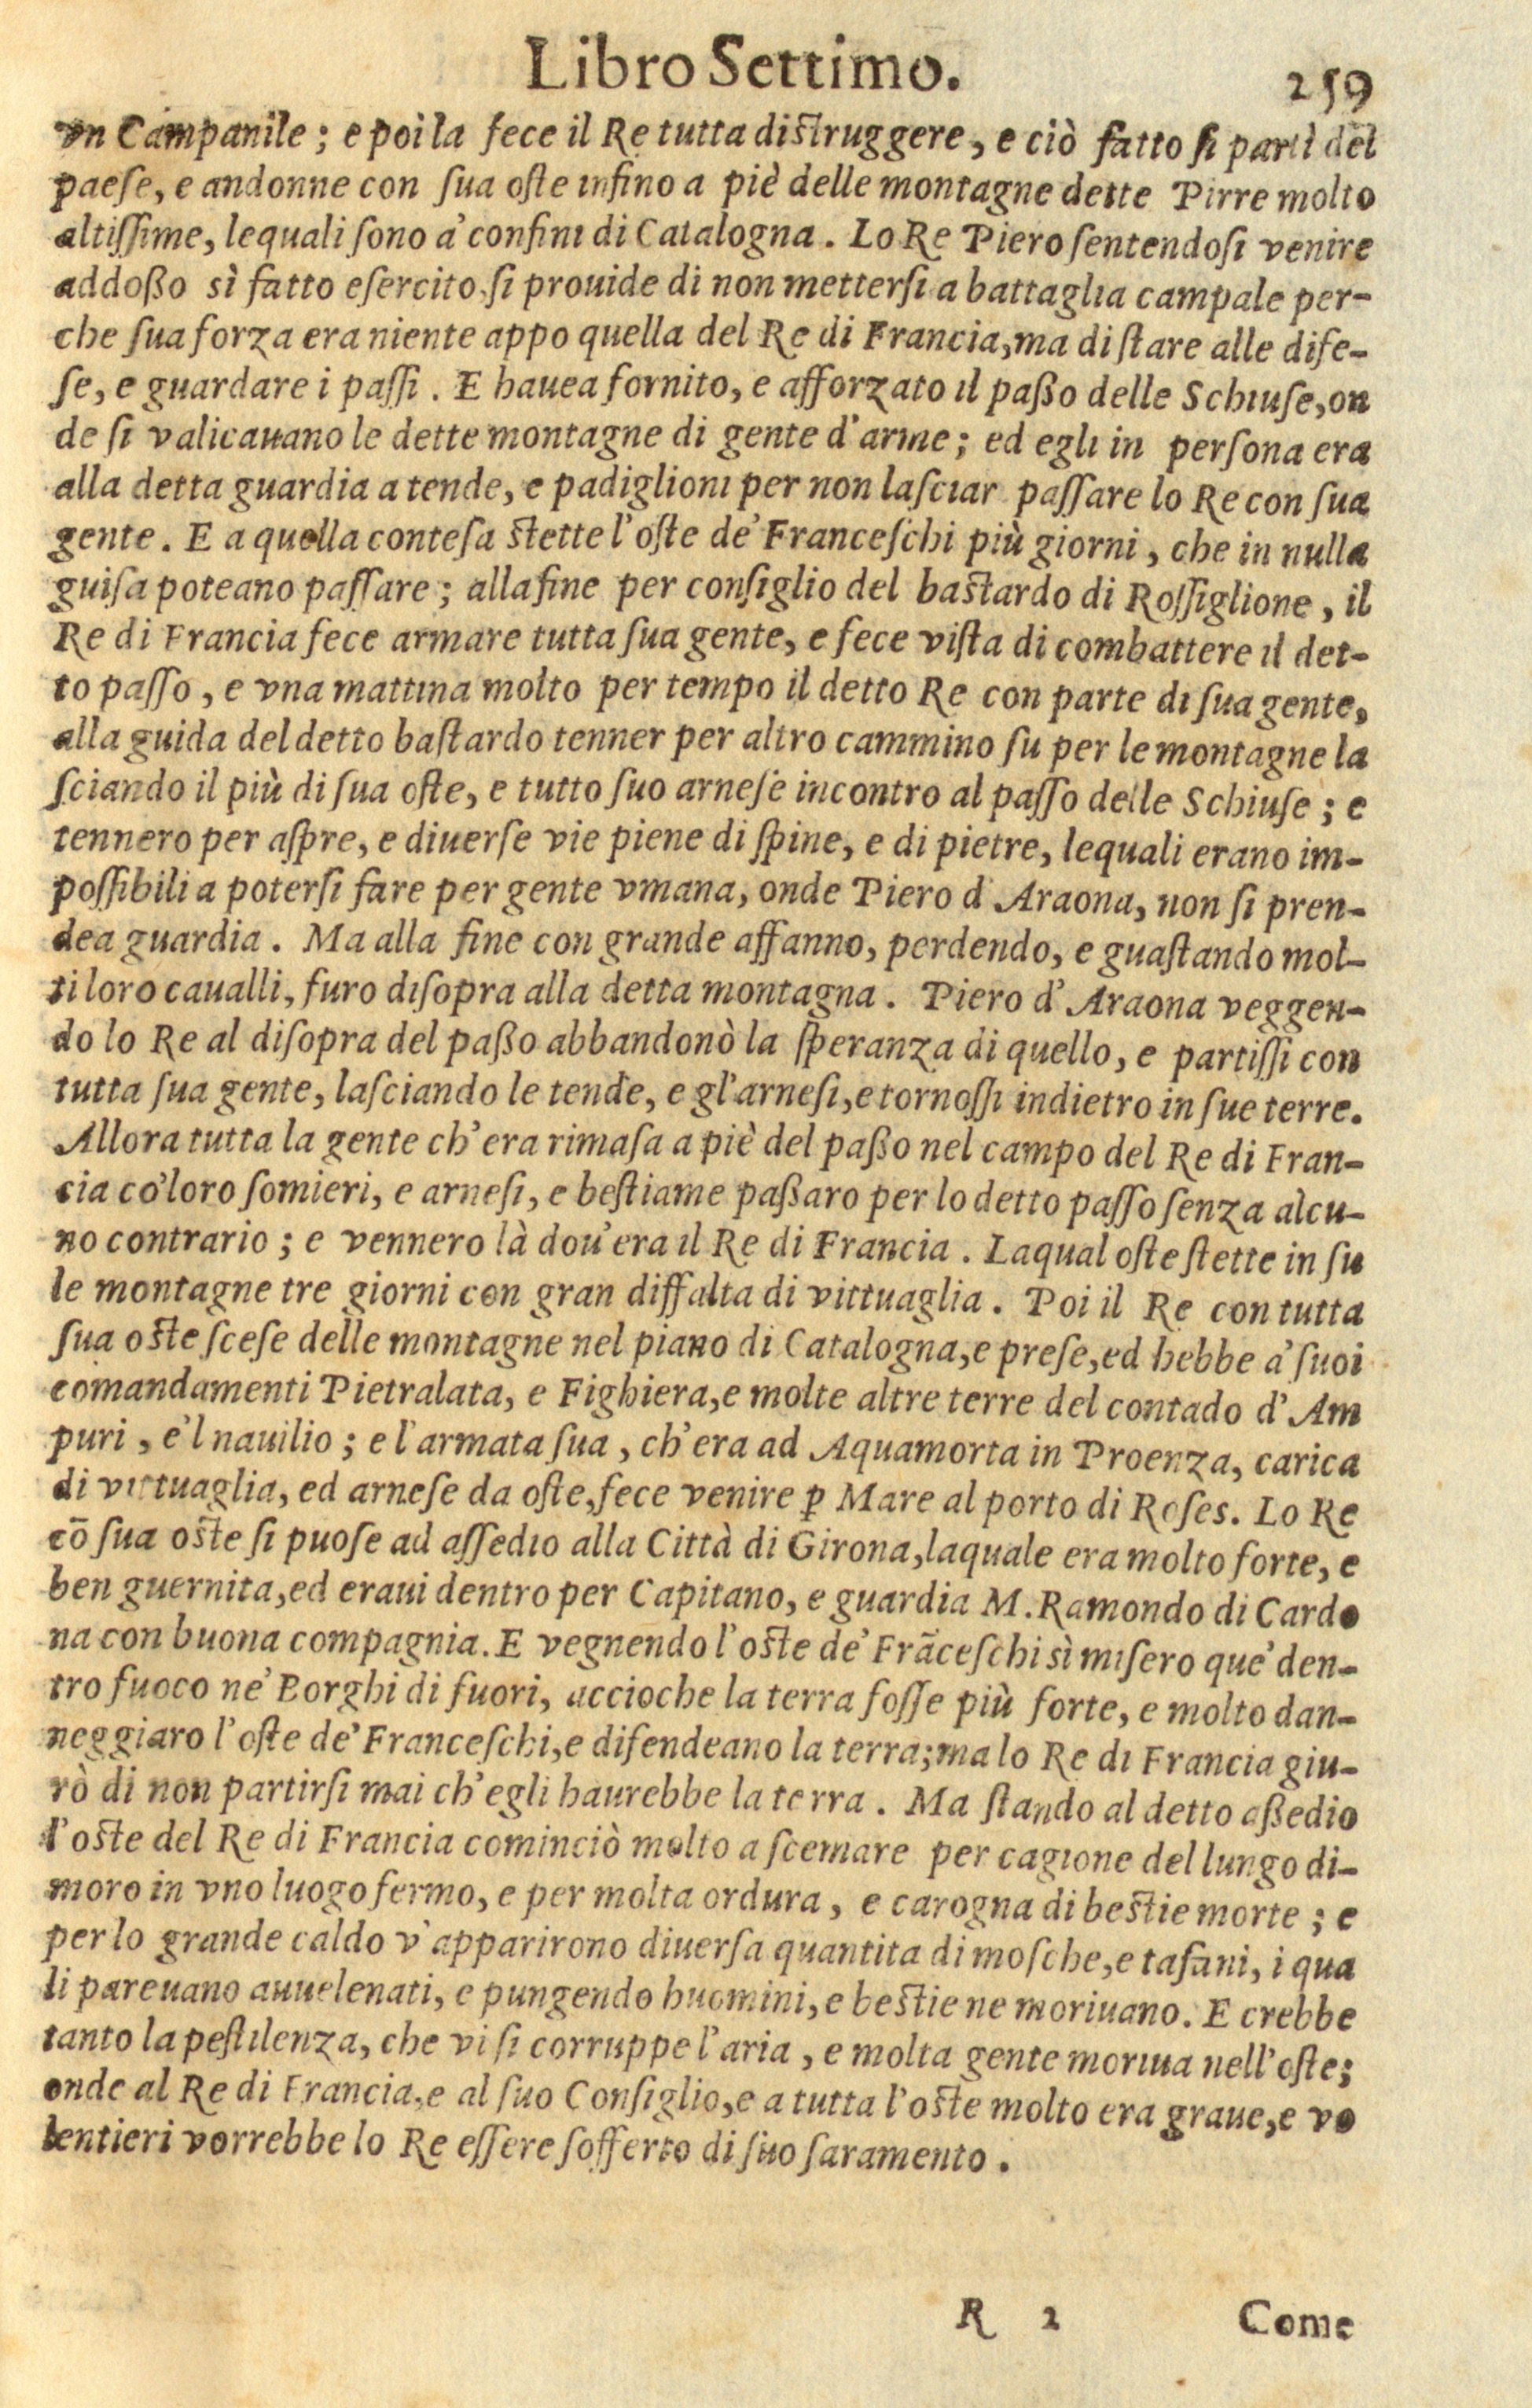 Libro Settimo. 259
vn Campanile; e poi la fece il Re tutta distruggere, e ciò fatto si partì del
paese, e andonne con sua oste infino a piè delle montagne dette Pirre molto
altissime, lequali sono a' confini di Catalogna. Lo Re Piero sentendosi venire
addosso sì fatto esercito, si prouide di non mettersi a battaglia campale per-
che sua forza era niente appo quella del Re di Francia, ma di stare alle dife-
se, e guardare i passi. E hauea fornito, e afforzato il passo delle Schiuse, on
de si valicauano le dette montagne di gente d'arme; ed egli in persona era
alla detta guardia a tende, e padiglioni per non lasciar passare lo Re con sua
gente. E a quella contesa stette l'oste de' Franceschi più giorni, che in nulla
guisa poteano passare; alla fine per consiglio del bastardo di Rossiglione, il
Re di Francia fece armare tutta sua gente, e fece vista di combattere il det-
to passo, e vna mattina molto per tempo il detto Re con parte di sua gente,
alla guida del detto bastardo tenner per altro cammino su per le montagne la
sciando il più di sua oste, e tutto suo arnese incontro al passo delle Schiuse; e
tennero per aspre, e diuerse vie piene di spine, e di pietre, lequali erano im-
possibili a potersi fare per gente vmana, onde Piero d'Araona, non si pren-
dea guardia. Ma alla fine con grande affanno, perdendo, e guastando mol-
ti loro caualli, furo disopra alla detta montagna. Piero d'Araona veggen-
do lo Re al disopra del passo abbandonò la speranza di quello, e partissi con
tutta sua gente, lasciando le tende, e gl'arnesi, e tornossi indietro in sue terre.
Allora tutta la gente ch'era rimasa a piè del passo nel campo del Re di Fran-
cia co'loro somieri, e arnesi, e bestiame passaro per lo detto passo senza alcu-
no contrario; e vennero là dou'era il Re di Francia. Laqual oste stette in su
le montagne tre giorni con gran diffalta di vittuaglia. Poi il Re con tutta
sua oste scese delle montagne nel piano di Catalogna, e prese, ed hebbe a' suoi
comandamenti Pietralata, e Fighiera, e molte altre terre del contado d'Am
puri, e'l nauilio; e l'armata sua, ch'era ad Aquamorta in Proenza, carica
di vittuaglia, ed arnese da oste, fece venire ꝑ Mare al porto di Roses. Lo Re
cō sua oste si puose ad assedio alla Città di Girona, laquale era molto forte, e
ben guernita, ed eraui dentro per Capitano, e guardia M. Ramondo di Cardo
na con buona compagnia. E vegnendo l'oste de' Frāceschi sì misero que' den-
tro fuoco ne' Borghi di fuori, accioche la terra fosse più forte, e molto dan-
neggiaro l'oste de' Franceschi, e difendeano la terra; ma lo Re di Francia giu-
rò di non partirsi mai ch'egli haurebbe la terra. Ma stando al detto assedio
l'oste del Re di Francia cominciò molto a scemare per cagione del lungo di-
moro in vno luogo fermo, e per molta ordura, e carogna di bestie morte; e
per lo grande caldo v'apparirono diuersa quantita di mosche, e tafani, i qua
li pareuano auuelenati, e pungendo huomini, e bestie ne moriuano. E crebbe
tanto la pestilenza, che vi si corruppe l'aria, e molta gente moriua nell'oste;
onde al Re di Francia, e al suo Consiglio, e a tutta l'oste molto era graue, e vo
lentieri vorrebbe lo Re essere sofferto di suo saramento.
R 2 Come